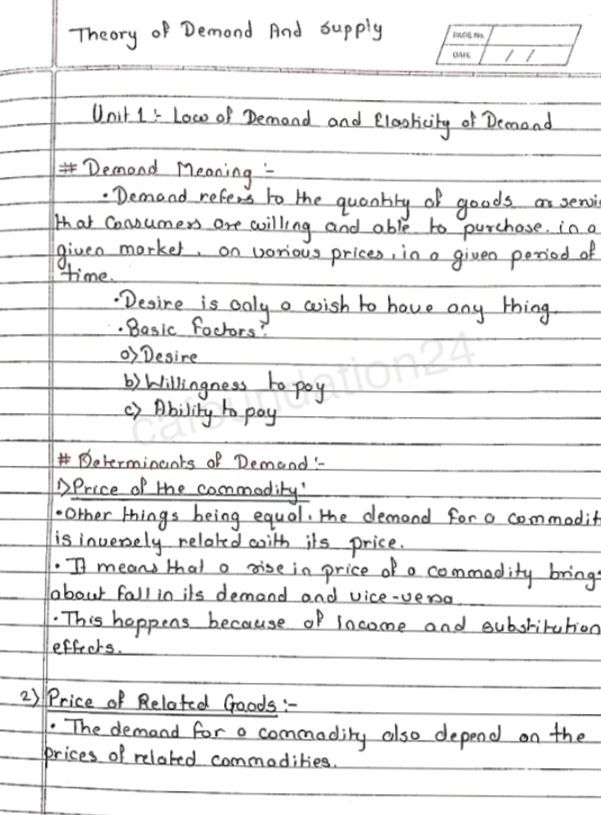 Theory of Demand And Supply
PAGE No.
DATE / /
Unit 1 :- Law of Demand and Elasticity of Demand
# Demand Meaning :-
• Demand refers to the quantity of goods or servi
that consumers are willing and able to purchase in a
given market, on various prices, in a given period of
time.
• Desire is only a wish to have any thing.
• Basic factors:
a) Desire
b) Willingness to pay
c) Ability to pay
cafoundation24
# Determinants of Demand :-
1) Price of the commodity:
• Other things being equal, the demand for a commodit
is inversely related with its price.
• It means that a rise in price of a commodity brings
about fall in its demand and vice-versa
• This happens because of income and substitution
effects.
2) Price of Related Goods :-
• The demand for a commodity also depend on the
prices of related commodities.